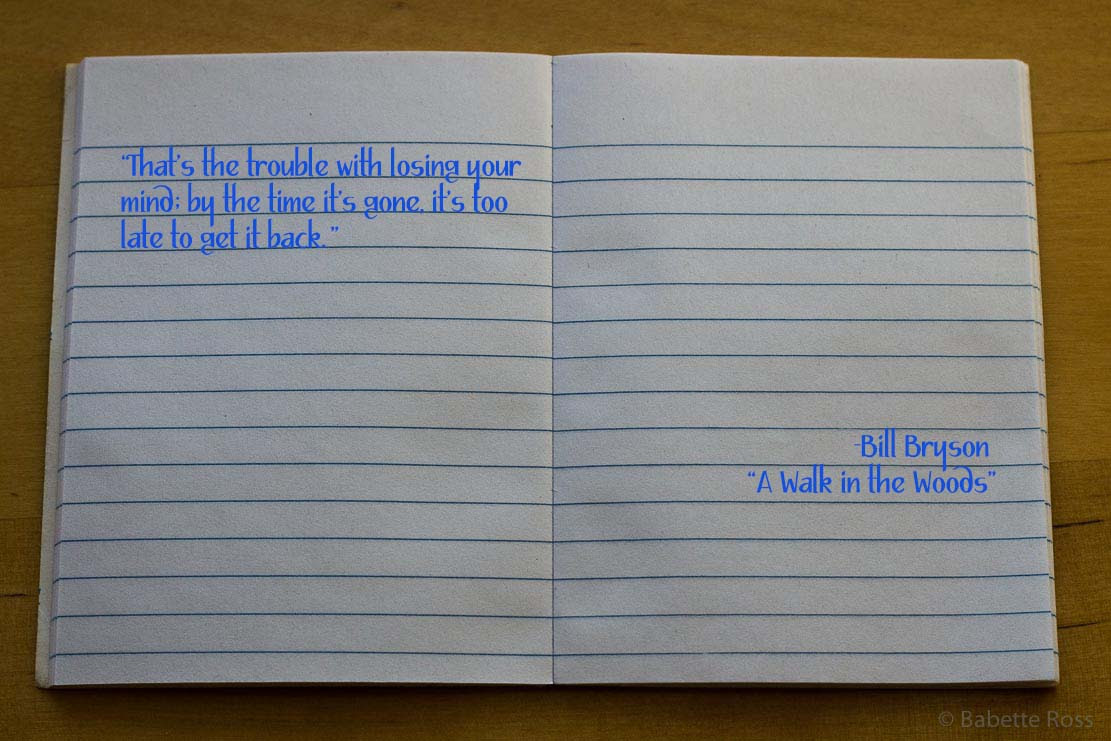 "That's the trouble with losing your
mind; by the time it's gone, it's too
late to get it back."
-Bill Bryson
"A Walk in the Woods"
© Babette Ross